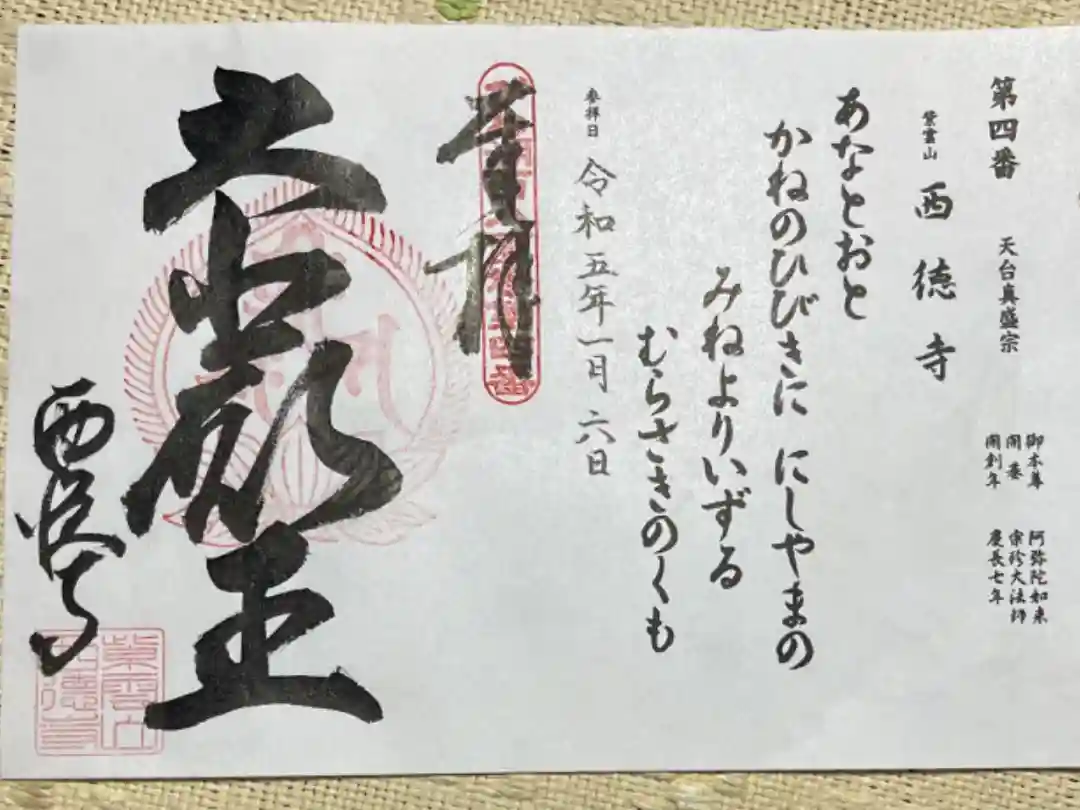 第四番 天台真盛宗
御本尊 阿弥陀如来
開基 宗珍大法師
開創年 慶長七年
紫雲山 西徳寺
あなとおと
かねのひびきに にしやまの
みねよりいずる
むらさきのくも
参拝日 令和五年一月六日
奉拝
大悲願王
西徳寺
紫雲山
西徳寺